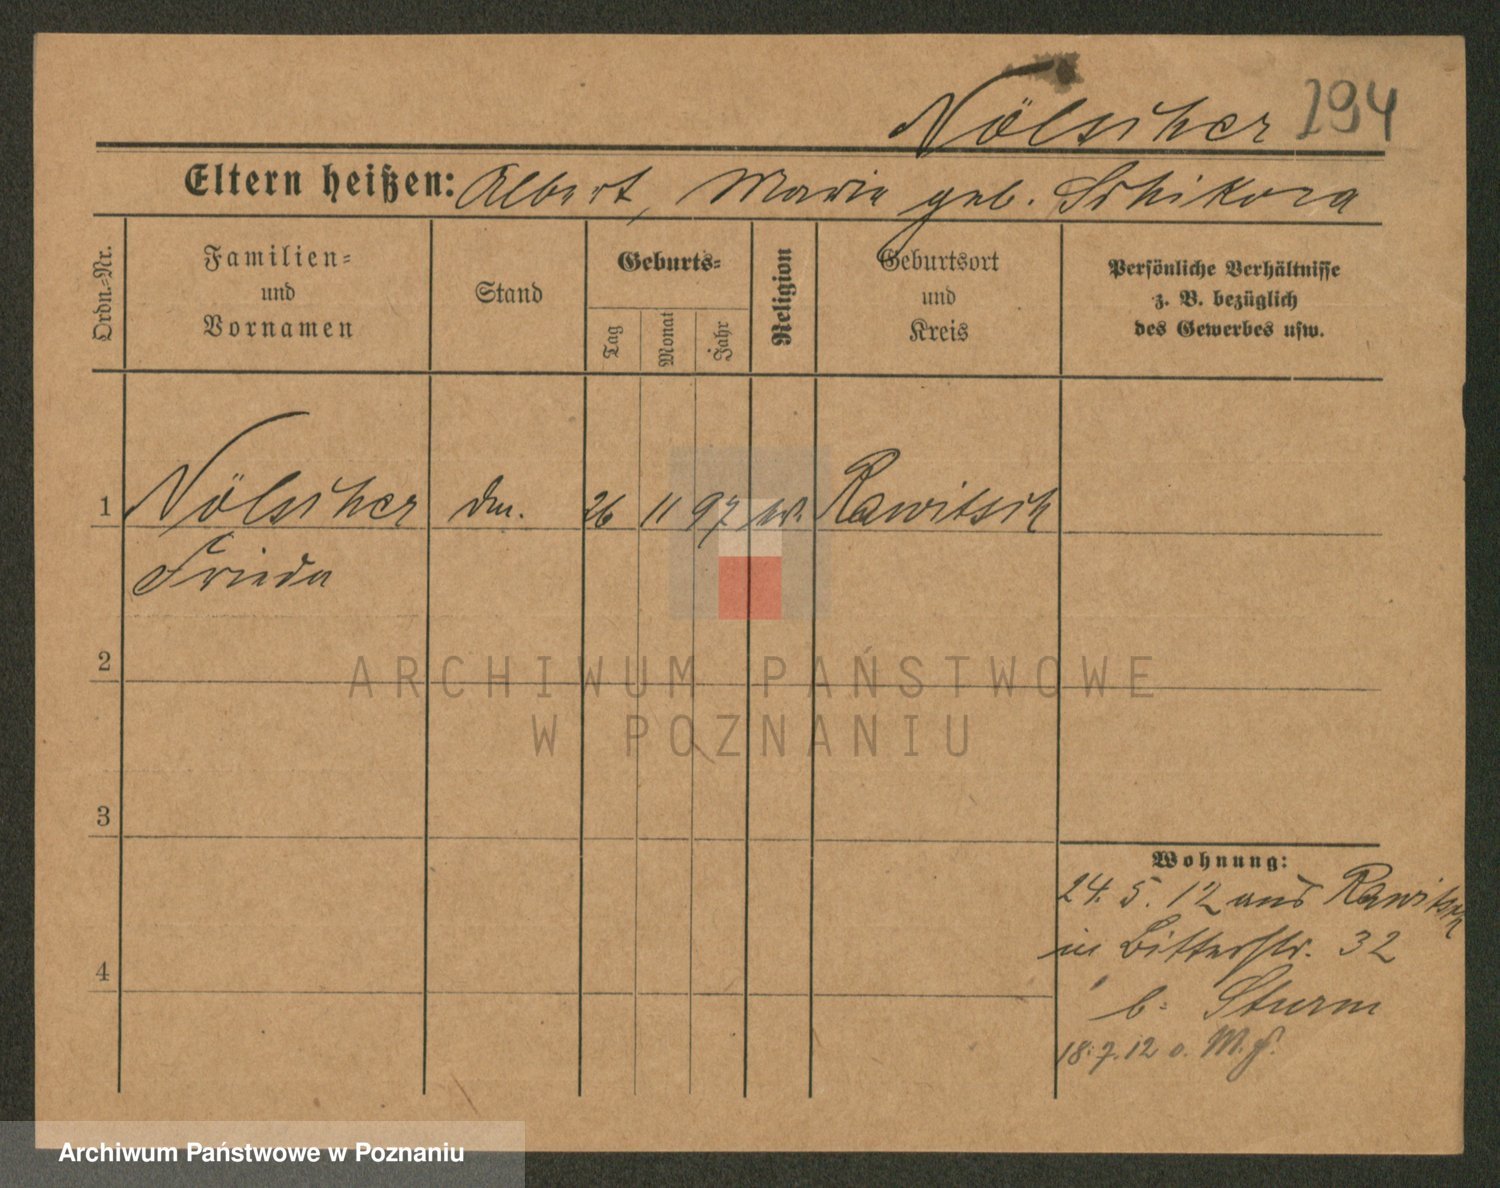 Nölscher 294
Eltern heißen: Albert, Marie geb. Schikora
Ordn.=Nr.
Familien=
und
Vornamen
Stand
Geburts=
Tag
Monat
Jahr
Religion
Geburtsort
und
Kreis
Persönliche Verhältnisse
z. B. bezüglich
des Gewerbes usw.
1 Nölscher 26 11 97 Rawitsch
Frieda
2
3
4
Wohnung:
24. 5. 12 aus Rawitsch
in Bitterstr. 32
b. Sturm
18. 7. 12
ARCHIWUM PAŃSTWOWE
W POZNANIU
Archiwum Państwowe w Poznaniu